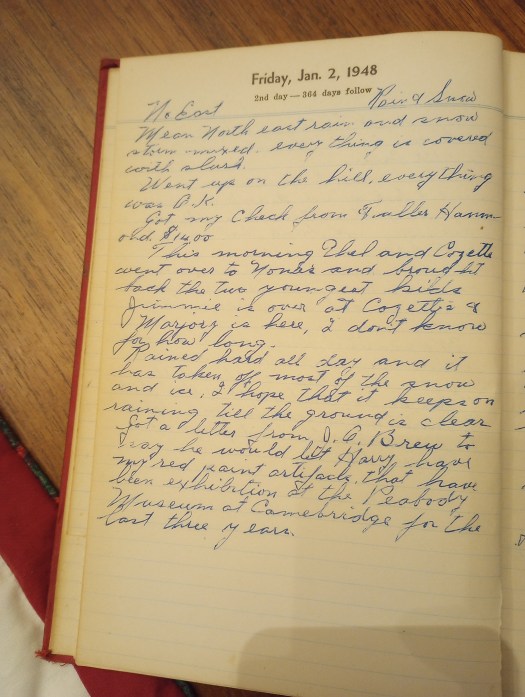 Friday, Jan. 2, 1948
2nd day — 364 days follow
No East Rain & Snow
Mean North east rain and snow
storm mixed. every thing is covered
with slush.
Went up on the hill, every thing
was O.K.
Got my check from Fuller Hamm-
ond. $14.00
This morning Ethel and Cozette
went over to Nonas and brought
back the two youngest kids
Jimmie is over at Cozettes &
Marjory is here, I don't know
for how long.
Rained hard all day and it
has taken off most of the snow
and ice, I hope that it keeps on
raining till the ground is clear
Got a letter from J.O. Brew to
say he would let Harry have
my red paint artifacts that have
been exhibition at the Peabody
Museum at Camebridge for the
last three years.